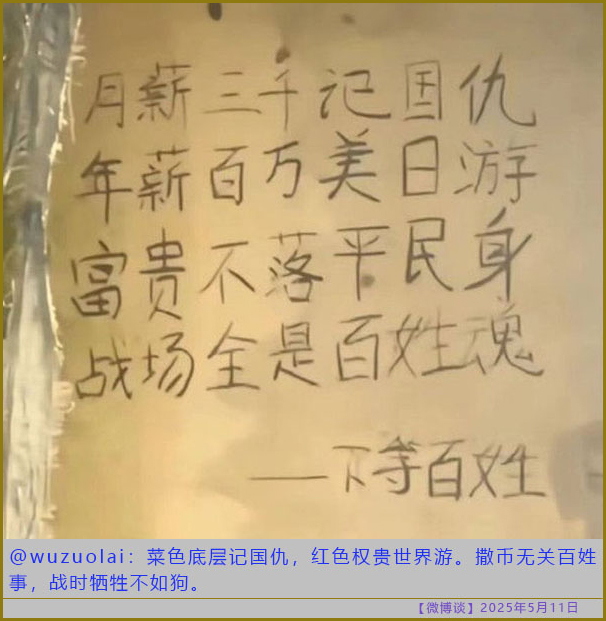 月薪三千记国仇
年薪百万美日游
富贵不落平民身
战场全是百姓魂
——下等百姓
@wuzuolai：菜色底层记国仇，红色权贵世界游。撒币无关百姓
事，战时牺牲不如狗。
【微博谈】2025年5月11日